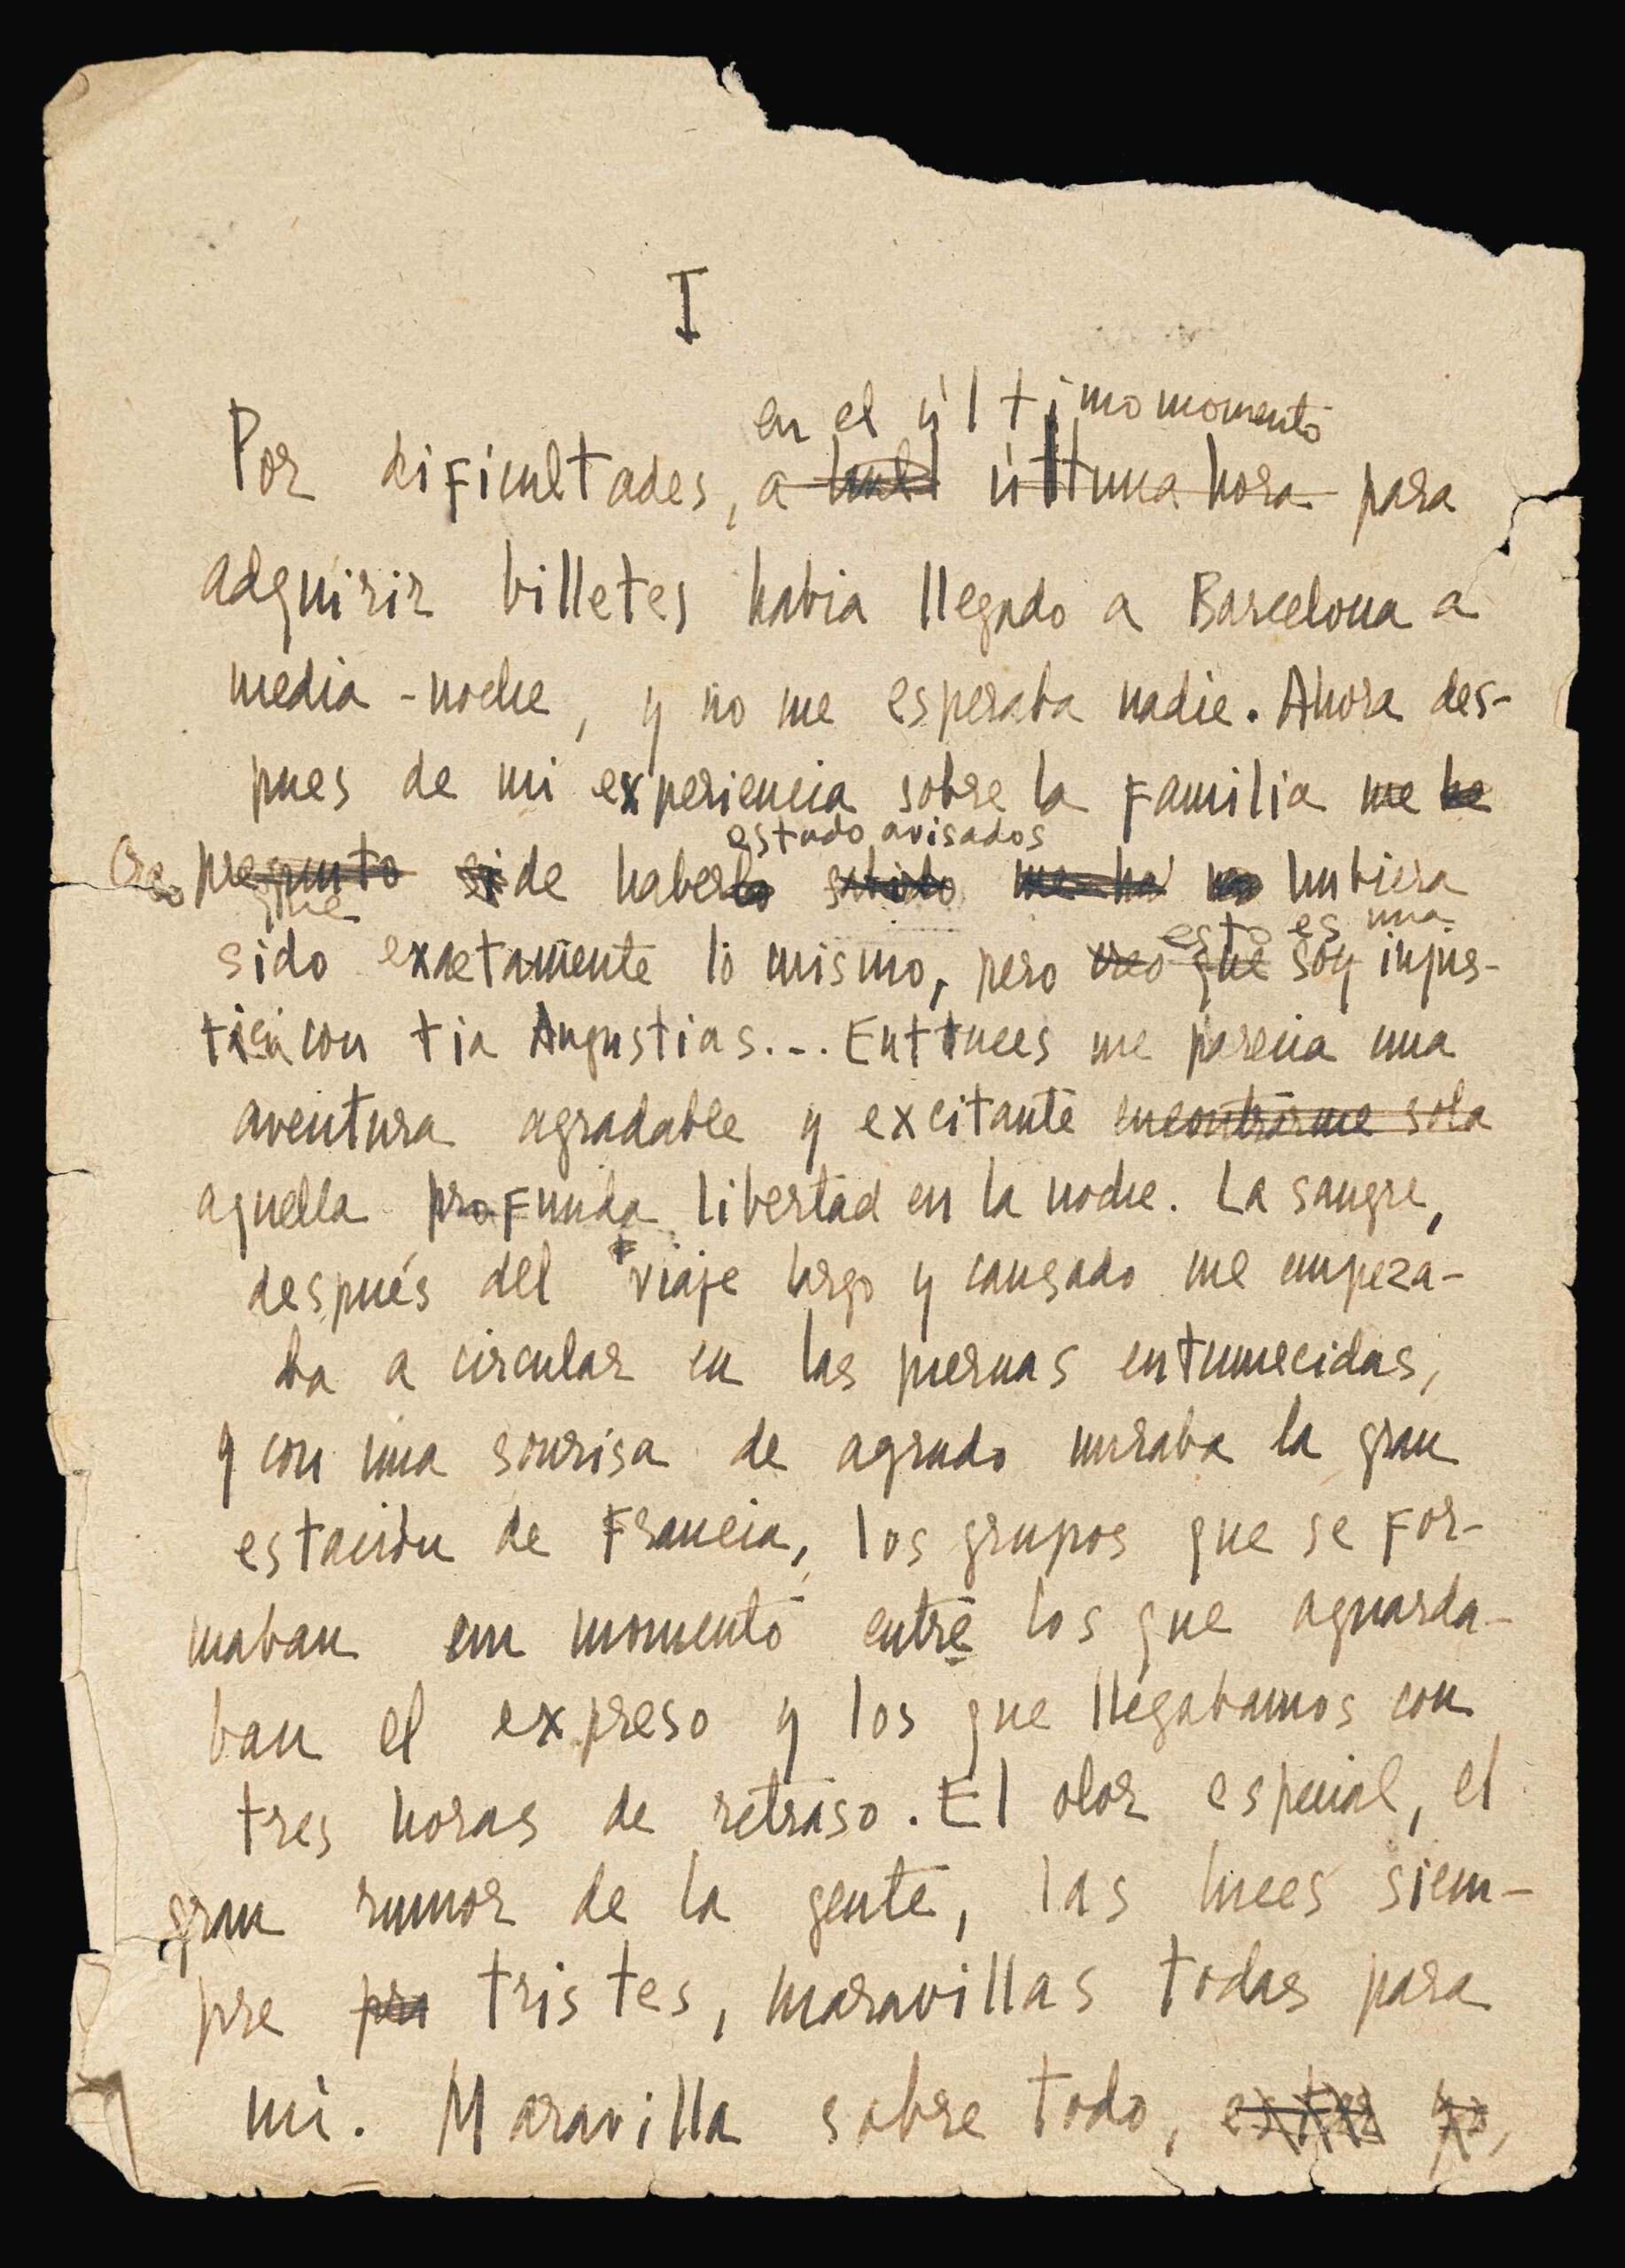 I
en el último momento
Por dificultades, a última hora para
adquirir billetes habia llegado a Barcelona a
media-noche, y no me esperaba nadie. Ahora des-
pues de mi experiencia sobre la familia me he
estado avisados
Creo pregunto si de haberlo sabido me ha no hubiera
que
esto es una
sido exactamente lo mismo, pero creo que soy injus-
ticia con tia Angustias... Entonces me parecia una
aventura agradable y excitante encontrarme sola
aquella profunda libertad en la noche. La sangre,
después del viaje largo y cansado me empeza-
ba a circular en las piernas entumecidas,
y con una sonrisa de agrado miraba la gran
estación de Francia, los grupos que se for-
maban en momento entre los que aguarda-
ban el expreso y los que llegabamos con
tres horas de retraso. El olor especial, el
gran rumor de la gente, las luces siem-
pre pra tristes, maravillas todas para
mi. Maravilla sobre todo, yo,